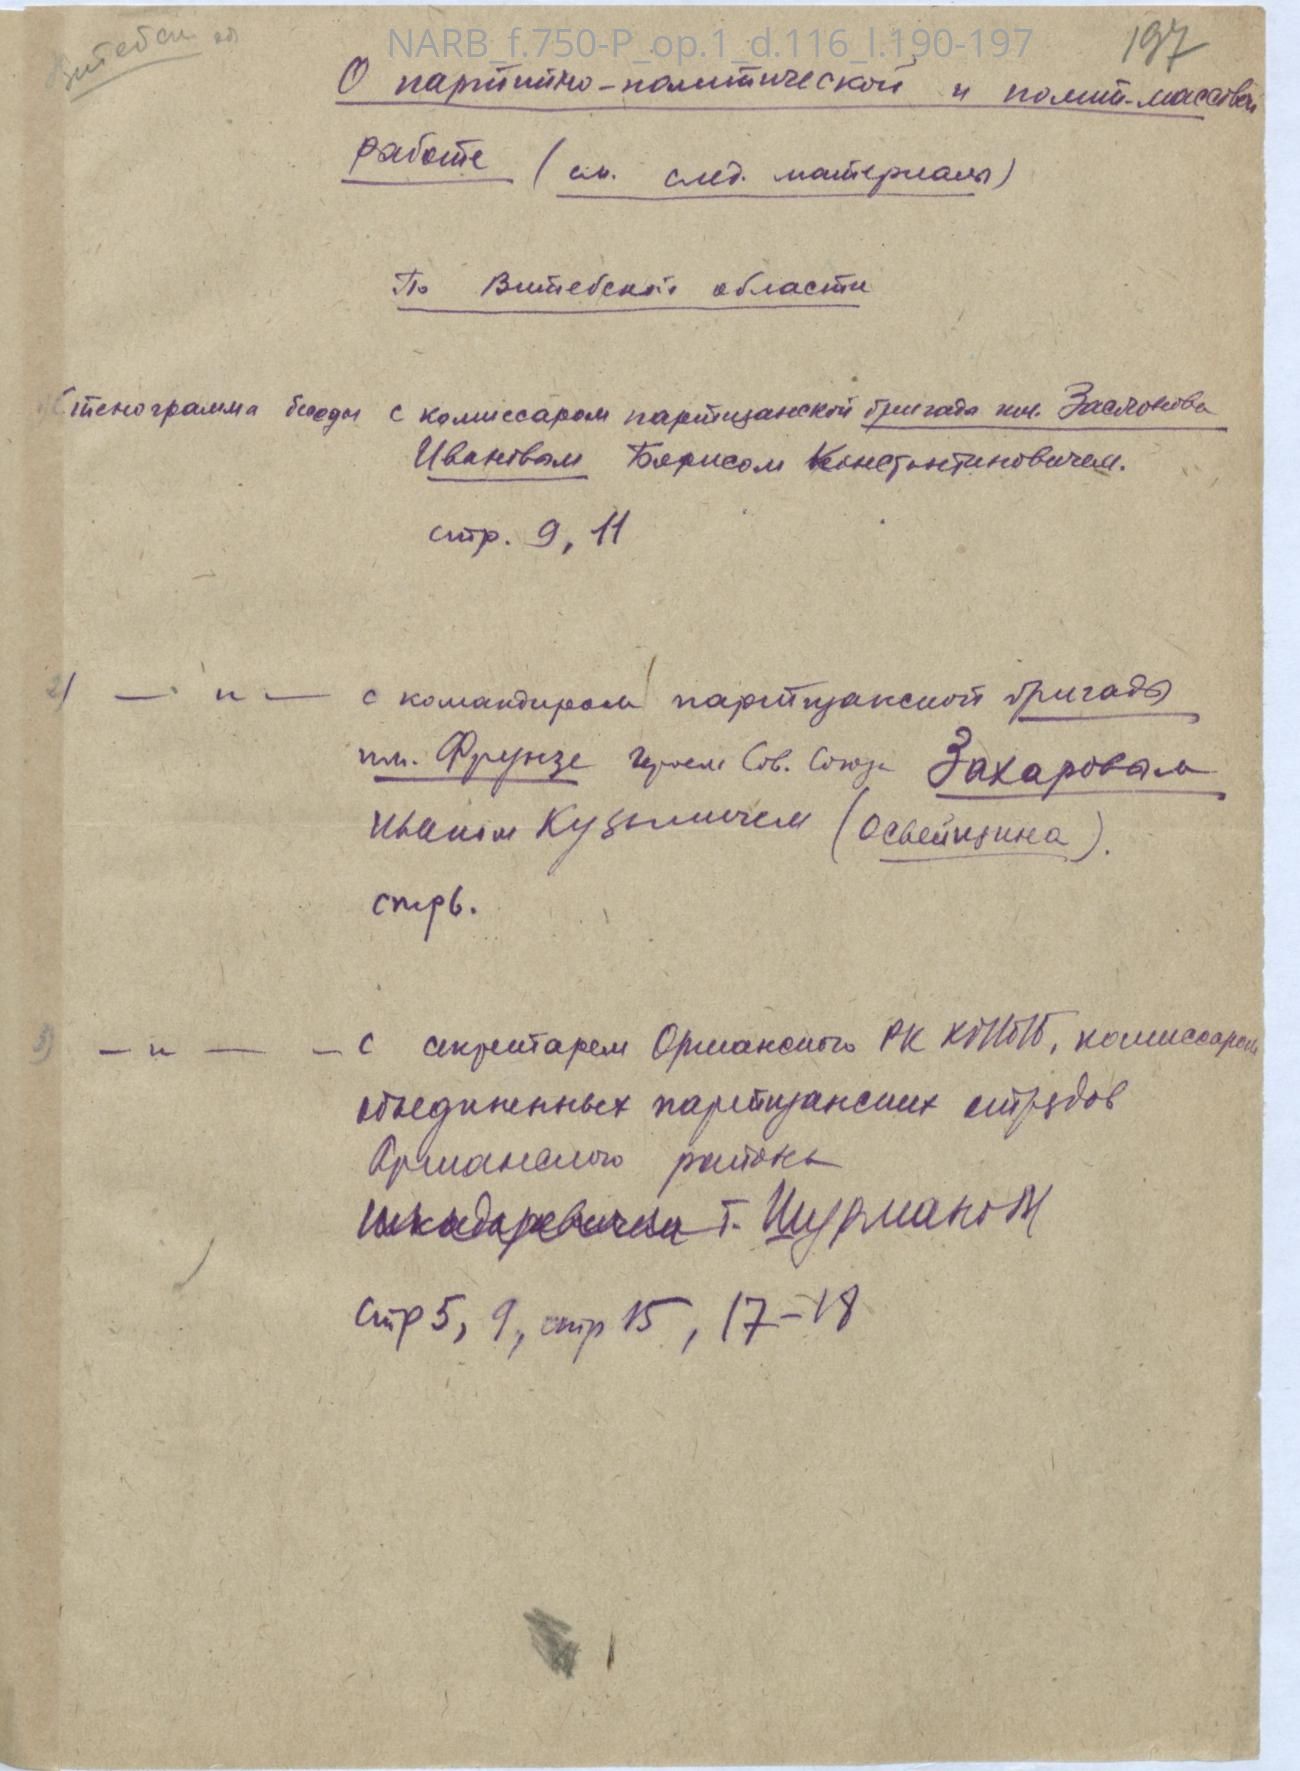 Витебск. об
NARB_f.750-P_op.1_d.116_l.190-197
197
О партийно-политической и полит-массовой
работе (см. след. материалы)
По Витебской области
1) Стенограмма беседы с комиссаром партизанской бригады им. Заслонова
Ивановым Борисом Константиновичем.
стр. 9, 11
2) — " — с командиром партизанской бригады
им. Фрунзе героем Сов. Союза Захаровым
Иваном Кузьмичем (Освейщина).
стр 6.
3) — " — — с секретарем Оршанского РК КП(б)Б, комиссаром
объединенных партизанских отрядов
Оршанского района
т. Шурманом
стр 5, 9, стр 15, 17-18